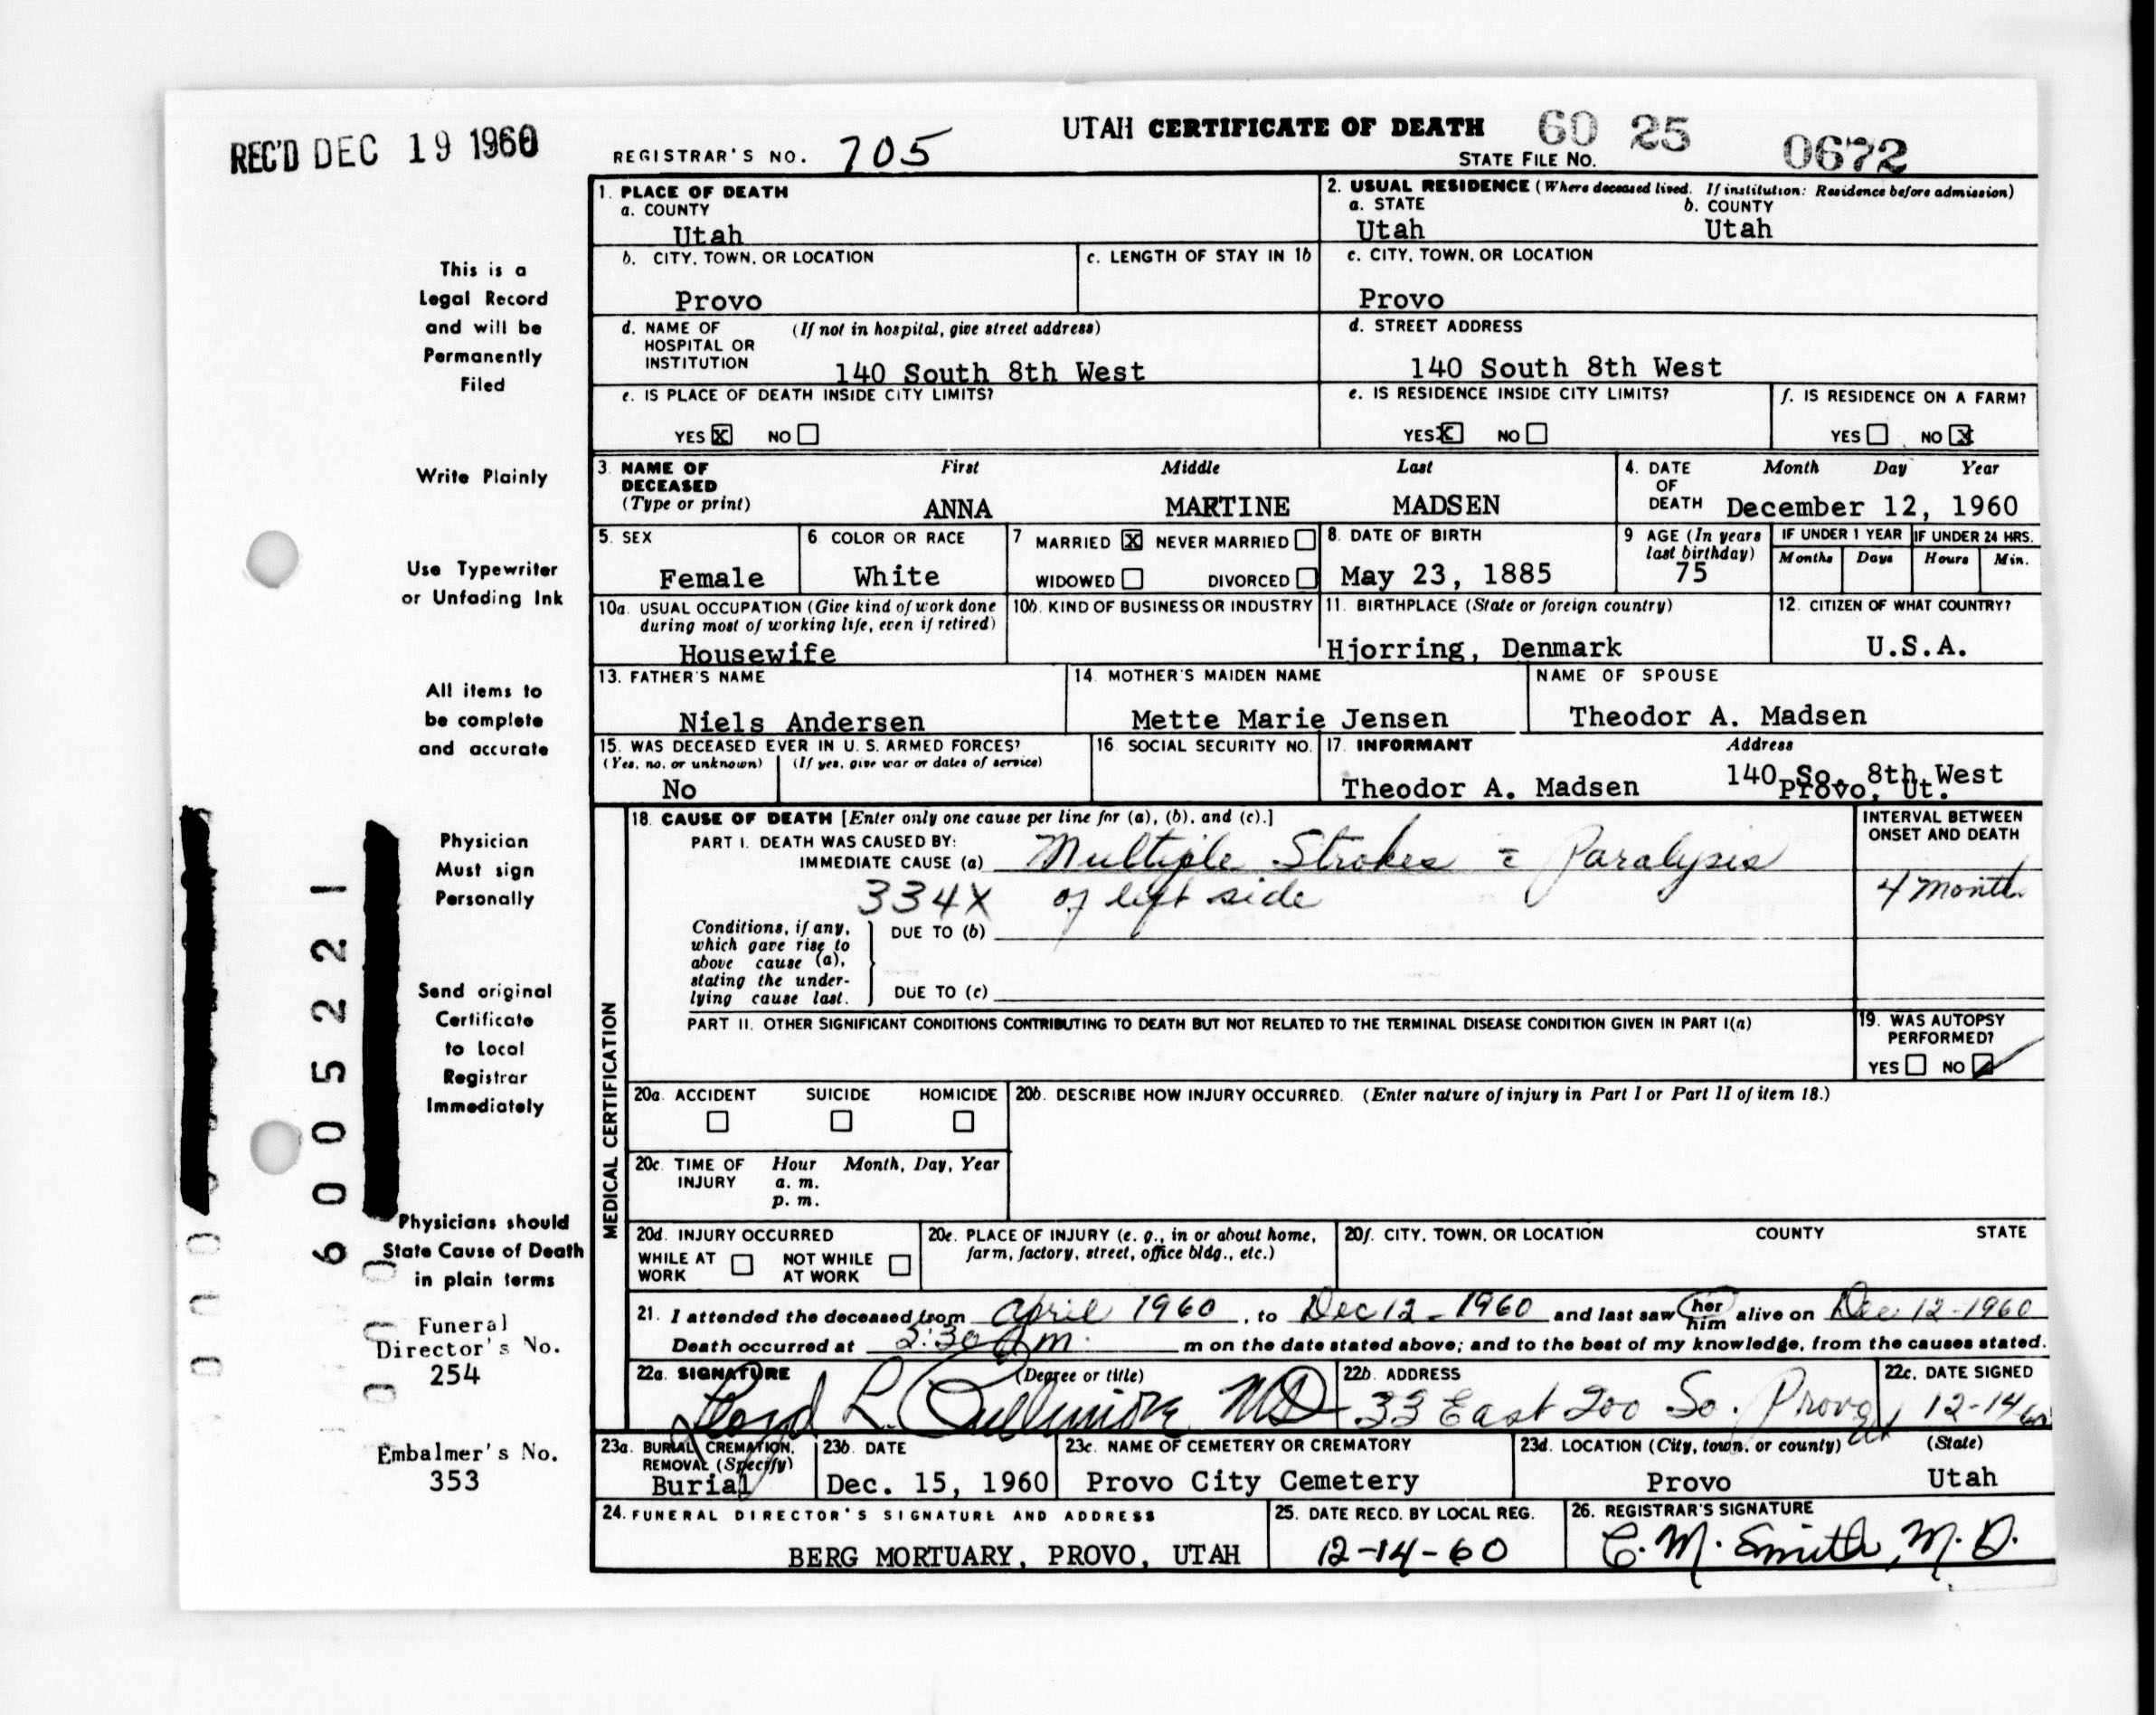 REC'D DEC 19 1960
UTAH CERTIFICATE OF DEATH 60 25 0672
REGISTRAR'S NO. 705 STATE FILE NO.
This is a
Legal Record
and will be
Permanently
Filed
Write Plainly
Use Typewriter
or Unfading Ink
All items to
be complete
and accurate
Physician
Must sign
Personally
Send original
Certificate
to Local
Registrar
Immediately
Physicians should
State Cause of Death
in plain terms
Funeral
Director's No.
254
Embalmer's No.
353
6005221
1. PLACE OF DEATH
a. COUNTY
Utah
2. USUAL RESIDENCE (Where deceased lived. If institution: Residence before admission)
a. STATE b. COUNTY
Utah Utah
b. CITY, TOWN, OR LOCATION
Provo
c. LENGTH OF STAY IN 1b
c. CITY, TOWN, OR LOCATION
Provo
d. NAME OF (If not in hospital, give street address)
HOSPITAL OR
INSTITUTION
140 South 8th West
d. STREET ADDRESS
140 South 8th West
e. IS PLACE OF DEATH INSIDE CITY LIMITS?
YES X NO
e. IS RESIDENCE INSIDE CITY LIMITS?
YES X NO
f. IS RESIDENCE ON A FARM?
YES NO X
3. NAME OF First Middle Last
DECEASED
(Type or print) ANNA MARTINE MADSEN
4. DATE Month Day Year
OF
DEATH December 12, 1960
5. SEX
Female
6 COLOR OR RACE
White
7 MARRIED X NEVER MARRIED
WIDOWED DIVORCED
8. DATE OF BIRTH
May 23, 1885
9 AGE (In years
last birthday)
75
IF UNDER 1 YEAR IF UNDER 24 HRS.
Months Days Hours Min.
10a. USUAL OCCUPATION (Give kind of work done
during most of working life, even if retired)
Housewife
10b. KIND OF BUSINESS OR INDUSTRY
11. BIRTHPLACE (State or foreign country)
Hjorring, Denmark
12. CITIZEN OF WHAT COUNTRY?
U.S.A.
13. FATHER'S NAME
Niels Andersen
14. MOTHER'S MAIDEN NAME
Mette Marie Jensen
NAME OF SPOUSE
Theodor A. Madsen
15. WAS DECEASED EVER IN U. S. ARMED FORCES?
(Yes, no, or unknown) (If yes, give war or dates of service)
No
16. SOCIAL SECURITY NO.
17. INFORMANT Address
Theodor A. Madsen 140 So. 8th West
Provo, Ut.
MEDICAL CERTIFICATION
18. CAUSE OF DEATH [Enter only one cause per line for (a), (b), and (c).]
PART I. DEATH WAS CAUSED BY:
IMMEDIATE CAUSE (a) Multiple Strokes = Paralysis
334X of left side
INTERVAL BETWEEN
ONSET AND DEATH
4 Month
Conditions, if any,
which gave rise to
above cause (a),
stating the under-
lying cause last.
DUE TO (b)
DUE TO (c)
PART II. OTHER SIGNIFICANT CONDITIONS CONTRIBUTING TO DEATH BUT NOT RELATED TO THE TERMINAL DISEASE CONDITION GIVEN IN PART I(a)
19. WAS AUTOPSY
PERFORMED?
YES NO
20a. ACCIDENT SUICIDE HOMICIDE
20b. DESCRIBE HOW INJURY OCCURRED. (Enter nature of injury in Part I or Part II of item 18.)
20c. TIME OF Hour Month, Day, Year
INJURY a. m.
p. m.
20d. INJURY OCCURRED
WHILE AT NOT WHILE
WORK AT WORK
20e. PLACE OF INJURY (e. g., in or about home,
farm, factory, street, office bldg., etc.)
20f. CITY, TOWN, OR LOCATION COUNTY STATE
21. I attended the deceased from April 1960, to Dec 12 - 1960 and last saw her him alive on Dec 12-1960
Death occurred at m on the date stated above; and to the best of my knowledge, from the causes stated.
22a. SIGNATURE (Degree or title)
Lloyd L. Cullimore MD
22b. ADDRESS
33 East 200 So. Provo Ut
22c. DATE SIGNED
12-14-60
23a. BURIAL, CREMATION,
REMOVAL (Specify)
Burial
23b. DATE
Dec. 15, 1960
23c. NAME OF CEMETERY OR CREMATORY
Provo City Cemetery
23d. LOCATION (City, town, or county) (State)
Provo Utah
24. FUNERAL DIRECTOR'S SIGNATURE AND ADDRESS
BERG MORTUARY, PROVO, UTAH
25. DATE RECD. BY LOCAL REG.
12-14-60
26. REGISTRAR'S SIGNATURE
C. M. Smith, M. D.